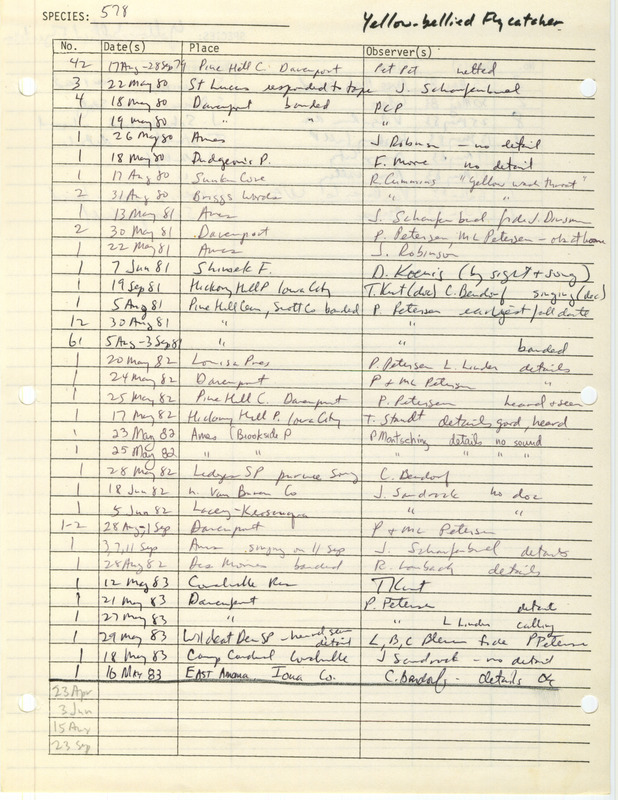 SPECIES: 578
Yellow-bellied Flycatcher
No. Date(s) Place Observer(s)
42 17Aug-28Sep79 Pine Hill C. Davenport Pet Pet netted
3 22 May 80 St Lucas responded to tape J. Schaufenbuel
4 18 May 80 Davenport banded PCP
1 19 May 80 " " "
1 26 May 80 Ames J Robinson - no detail
1 18 May 80 Dudgeonic P. F. Moore no detail
1 17 Aug 80 Sunken Cove R. Cummins "Yellow throat"
2 31 Aug 80 Briggs Woods " "
1 13 May 81 Ames J. Schaufenbuel fide J. Dinsmore
2 30 May 81 Davenport P. Petersen, MC Petersen -
1 22 May 81 Ames J. Robinson
1 7 Jun 81 Shimek F. D. Koenig (by sight + song)
1 19 Sep 81 Hickory Hill P Iowa City T. Kent (doc) C. Bendorf singing (doc)
1 5 Aug 81 Pine Hill Cem, Scott Co banded P. Petersen earliest fall date
12 30 Aug 81 " "
61 5 Aug-3 Sep 81 " " banded
1 20 May 82 Louisa P. Petersen L. Linder details
1 24 May 82 Davenport P + MC Petersen "
1 25 May 82 Pine Hill C. Davenport P. Petersen heard + seen
1 17 May 82 Hickory Hill P. Iowa City T. Staudt details good, heard
1 23 May 82 Ames (Brookside P P Martsching details no sound
1 25 May 82 " " " " " "
1 28 May 82 Ledges SP Song C. Bendorf
1 18 Jun 82 n. Van Buren Co J. Sandrock no doc
1 5 Jun 82 Lacey-Keosauqua " "
1-2 28 Aug-1 Sep Davenport P + MC Petersen
1 3,7,11 Sep Ames singing on 11 Sep J. Schaufenbuel details
1 28 Aug 82 Des Moines banded R. details
1 12 May 83 Coralville Res T Kent
1 21 May 83 Davenport P. Petersen detail
1 27 May 83 " L Linder calling
1 29 May 83 Wildcat Den SP - heard seen detail L, B, C Blevins fide P Petersen
1 18 May 83 Camp Cardinal Coralville J Sandrock - no detail
1 16 May 83 EAST Amana Iowa Co. C. Bendorf - details OK
23 Apr
3 Jun
15 Aug
23 Sep